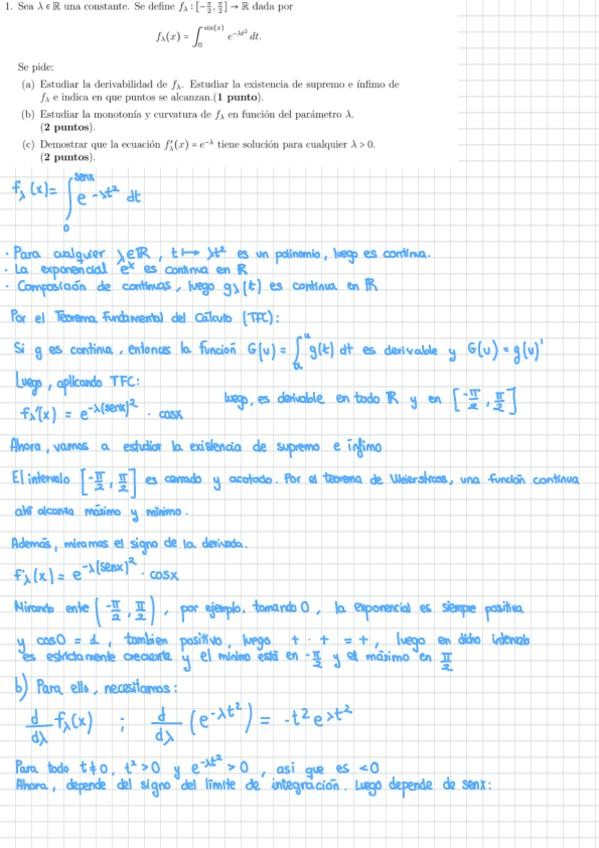 1. Sea λ ∈ ℝ una constante. Se define f_λ : [-π/2, π/2] → ℝ dada por
f_λ(x) = ∫_0^{sin(x)} e^{-λt²} dt.
Se pide:
(a) Estudiar la derivabilidad de f_λ. Estudiar la existencia de supremo e ínfimo de
f_λ e indica en que puntos se alcanzan.(1 punto).
(b) Estudiar la monotonía y curvatura de f_λ en función del parámetro λ.
(2 puntos).
(c) Demostrar que la ecuación f'_λ(x) = e^{-λ} tiene solución para cualquier λ > 0.
(2 puntos).
f_λ(x) = ∫_0^{senx} e^{-λt²} dt
· Para cualquier λ∈ℝ, t ↦ λt² es un polinomio, luego es continua.
· La exponencial e^x es continua en ℝ
· Composición de continuas, luego g_λ(t) es continua en ℝ
Por el Teorema Fundamental del Cálculo (TFC):
Si g es continua, entonces la función G(u) = ∫_a^u g(t) dt es derivable y G(u) = g(u)'
Luego, aplicando TFC:
f_λ'(x) = e^{-λ(senx)²} · cosx luego, es derivable en todo ℝ y en [-π/2, π/2]
Ahora, vamos a estudiar la existencia de supremo e ínfimo
El intervalo [-π/2, π/2] es cerrado y acotado. Por el teorema de Weierstrass, una función continua
ahí alcanza máximo y mínimo.
Además, miramos el signo de la derivada.
f'_λ(x) = e^{-λ(senx)²} · cosx
Mirando ente (-π/2, π/2), por ejemplo, tomando 0, la exponencial es siempre positiva
y cos0 = 1, tambien positivo, luego + · + = +, luego en dicho intervalo
es estrictamente creciente y el mínimo está en -π/2 y el máximo en π/2
b) Para ello, necesitamos:
d/dλ f_λ(x) ; d/dλ (e^{-λt²}) = -t² e^{λt²}
Para todo t≠0, t²>0 y e^{-λt²} > 0, asi que es <0
Ahora, depende del signo del límite de integración. Luego depende de senx: